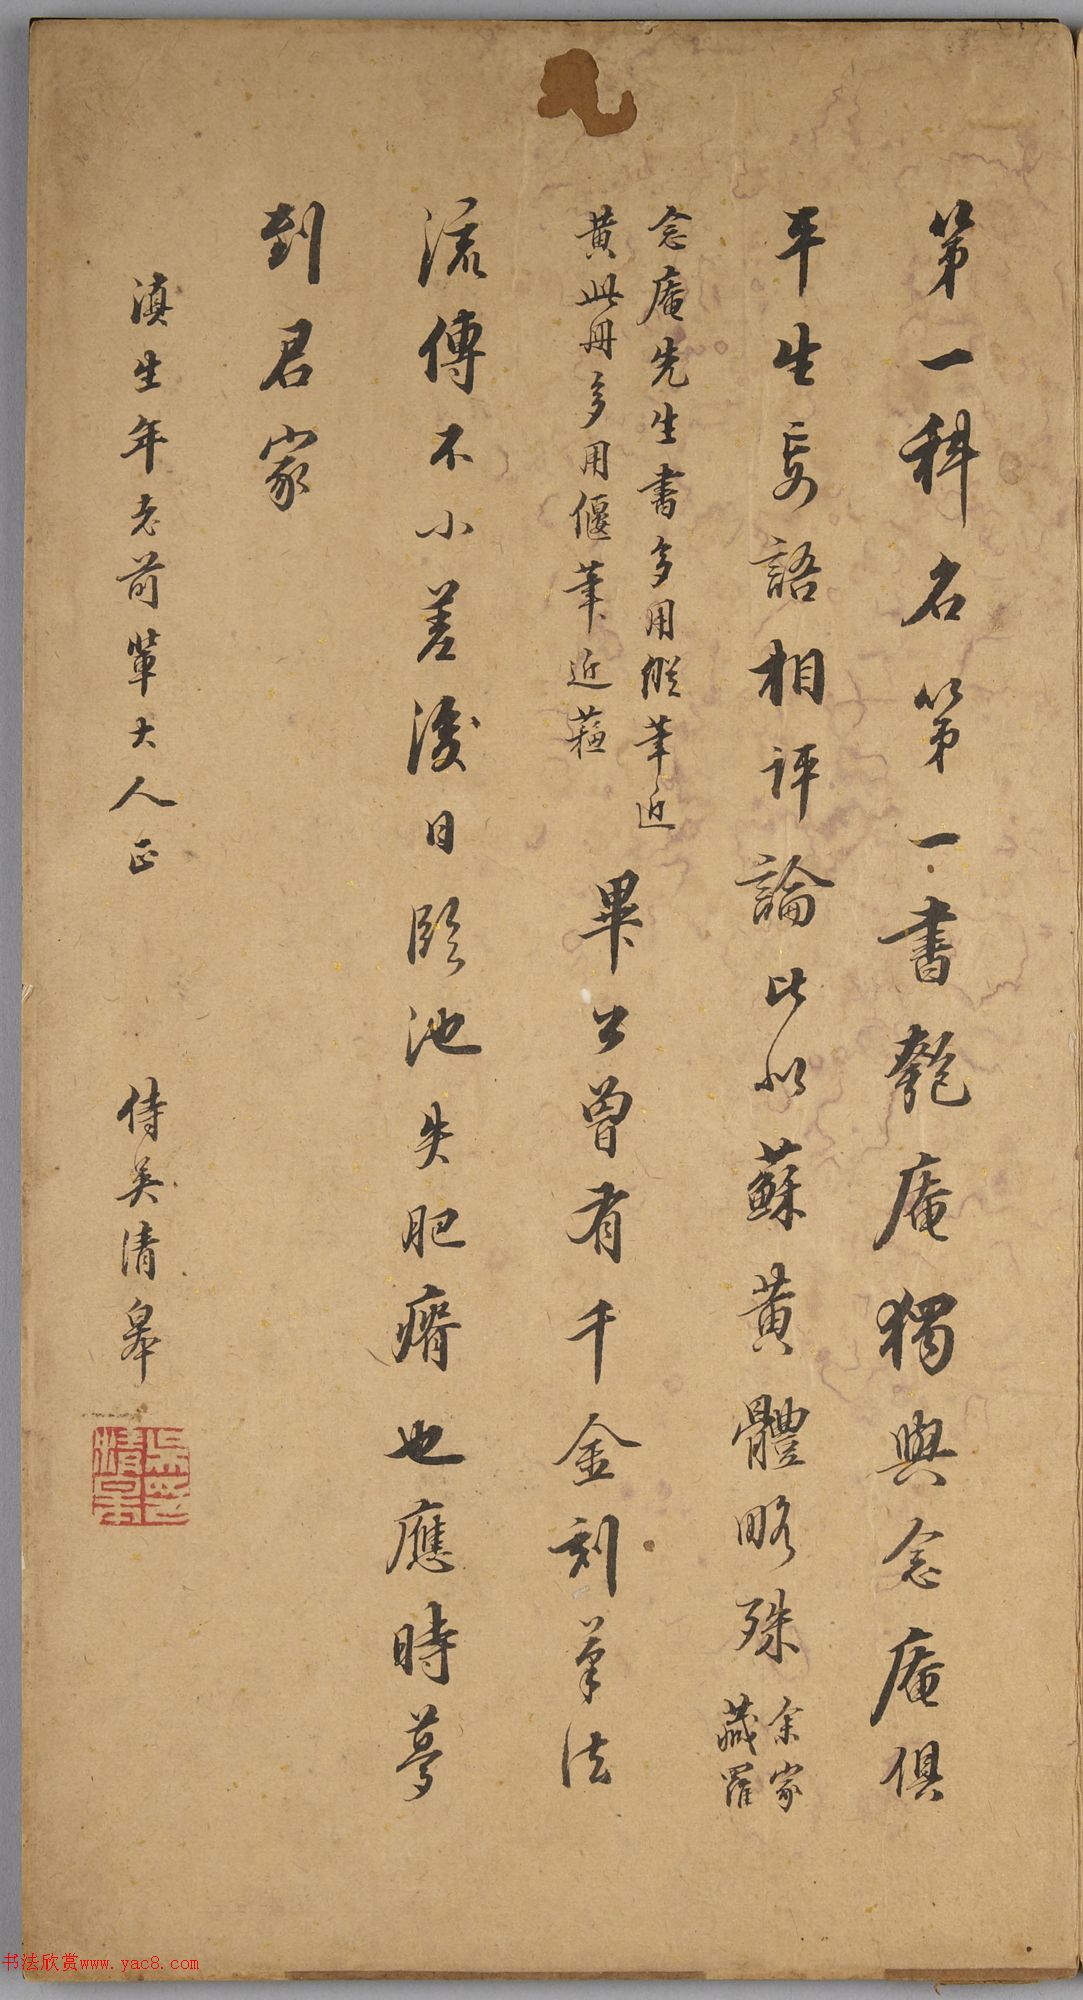 第一科名第一書匏庵獨與念庵俱
平生妄語相評論比似蘇黃體略殊余家
藏羅
念庵先生書多用縱筆近
黃此冊多用偃筆近蘇
畢公曾有千金刻筆法
流傳不小差後日臨池失肥瘠也應時夢
到君家
滇生年老前輩大人正
侍吳清皋
吳清皋
书法欣赏www.yac8.com